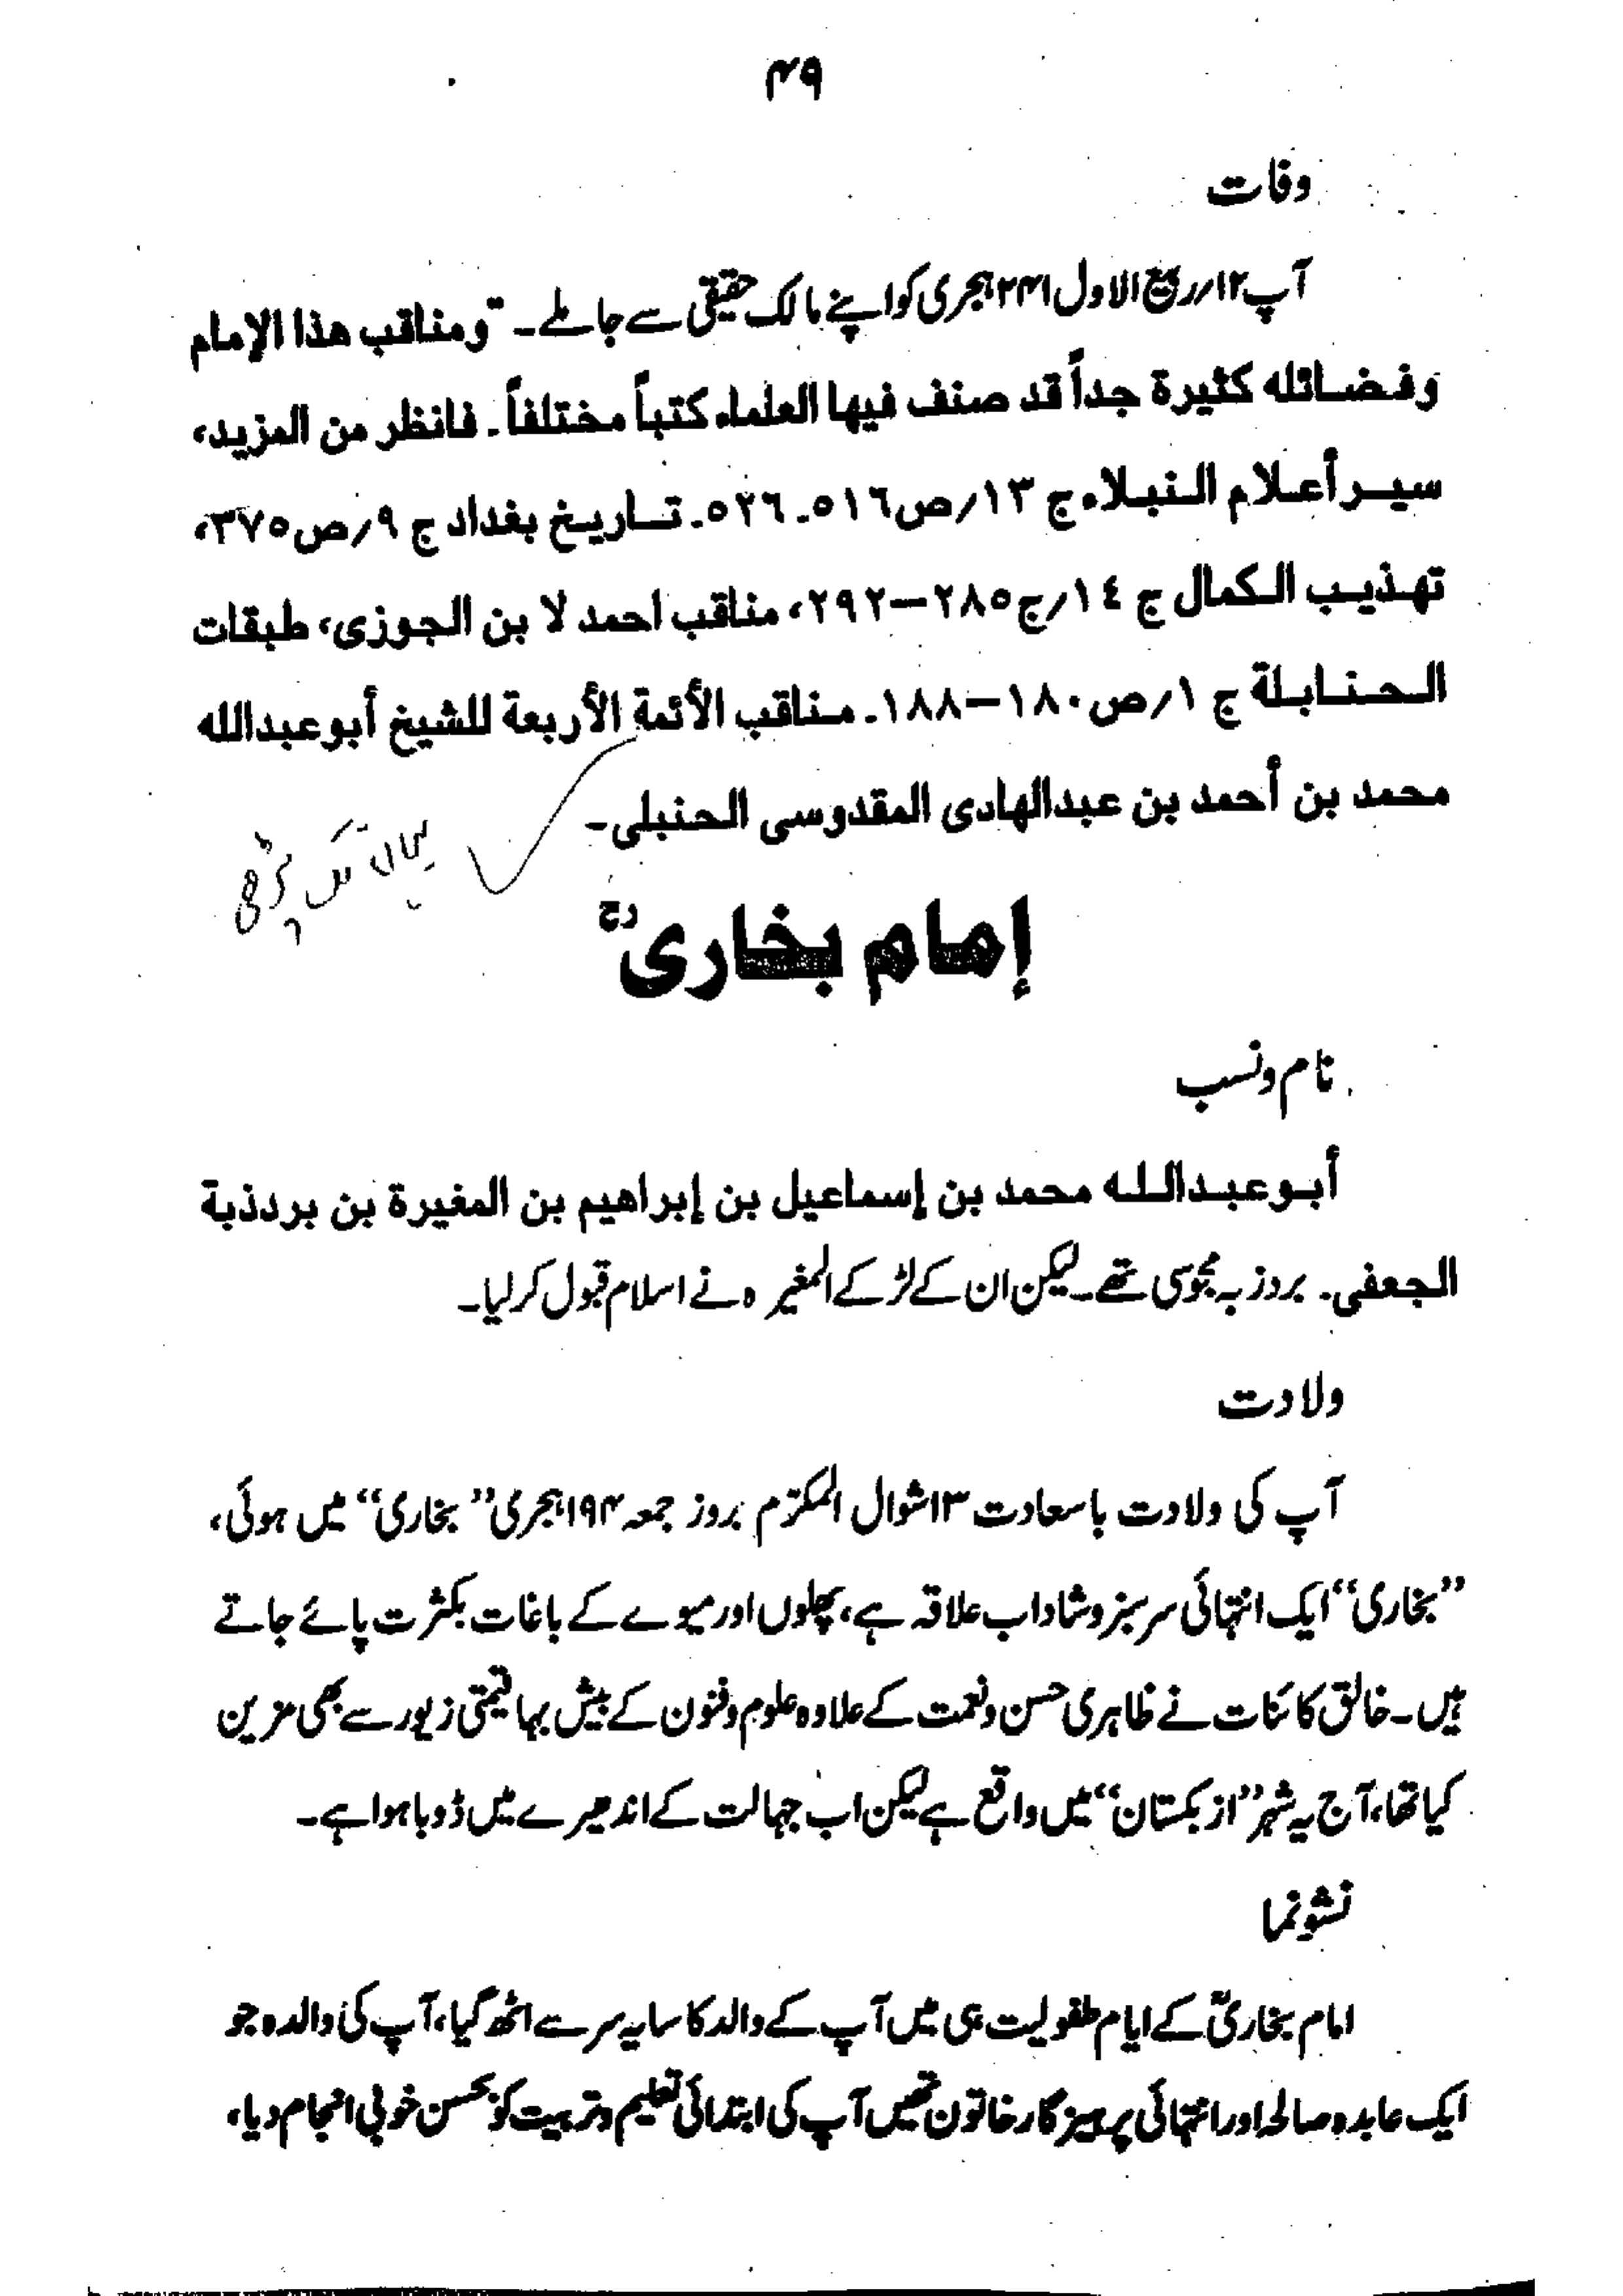 ۴۹
وفات
آپ ۱۲/ربیع الاول ۲۴۱ہجری کو اپنے مالک حقیقی سے جاملے۔ "ومناقب هذا الإمام
وفضائله كثيرة جداً قد صنف فيها العلماء كتباً مختلفاً۔ فانظر من المزيد،
سير أعلام النبلاء ج ۱۳/ص۵۱۶۔۵۲۶۔ تاريخ بغداد ج ۹/ص۳۷۵،
تهذيب الكمال ج ۱٤/ج۲۸۵–۲۹۲، مناقب احمد لا بن الجوزى، طبقات
الحنابلة ج ۱/ص۱۸۰–۱۸۸۔ مناقب الأئمة الأربعة للشيخ أبو عبدالله
محمد بن أحمد بن عبدالهادى المقدوسى الحنبلى۔
إمام بخاریؒ
نام ونسب
أبو عبدالله محمد بن إسماعيل بن إبراهيم بن المغيرة بن بردذبة
الجعفى۔ بروزبہ مجوسی تھے۔ لیکن ان کے لڑکے المغیرہ نے اسلام قبول کرلیا۔
ولادت
آپ کی ولادت باسعادت ۱۳شوال المکرّم بروز جمعہ ۱۹۴ہجری ”بخاری“ میں ہوئی،
”بخاری“ ایک انتہائی سرسبز و شاداب علاقہ ہے، پھلوں اور میوے کے باغات بکثرت پائے جاتے
ہیں۔ خالق کائنات نے ظاہری حسن و نعمت کے علاوہ علوم وفنون کے بیش بہا قیمتی زیور سے بھی مزین
کیا تھا، آج یہ شہر ”ازبکستان“ میں واقع ہے لیکن اب جہالت کے اندھیرے میں ڈوبا ہوا ہے۔
نشوونما
امام بخاریؒ کے ایام طفولیت ہی میں آپ کے والد کا سایہ سر سے اٹھ گیا، آپ کی والدہ جو
ایک عابدہ وصالحہ اور انتہائی پرہیزگار خاتون تھیں آپ کی ابتدائی تعلیم و تربیت کو بحسن خوبی انجام دیا،